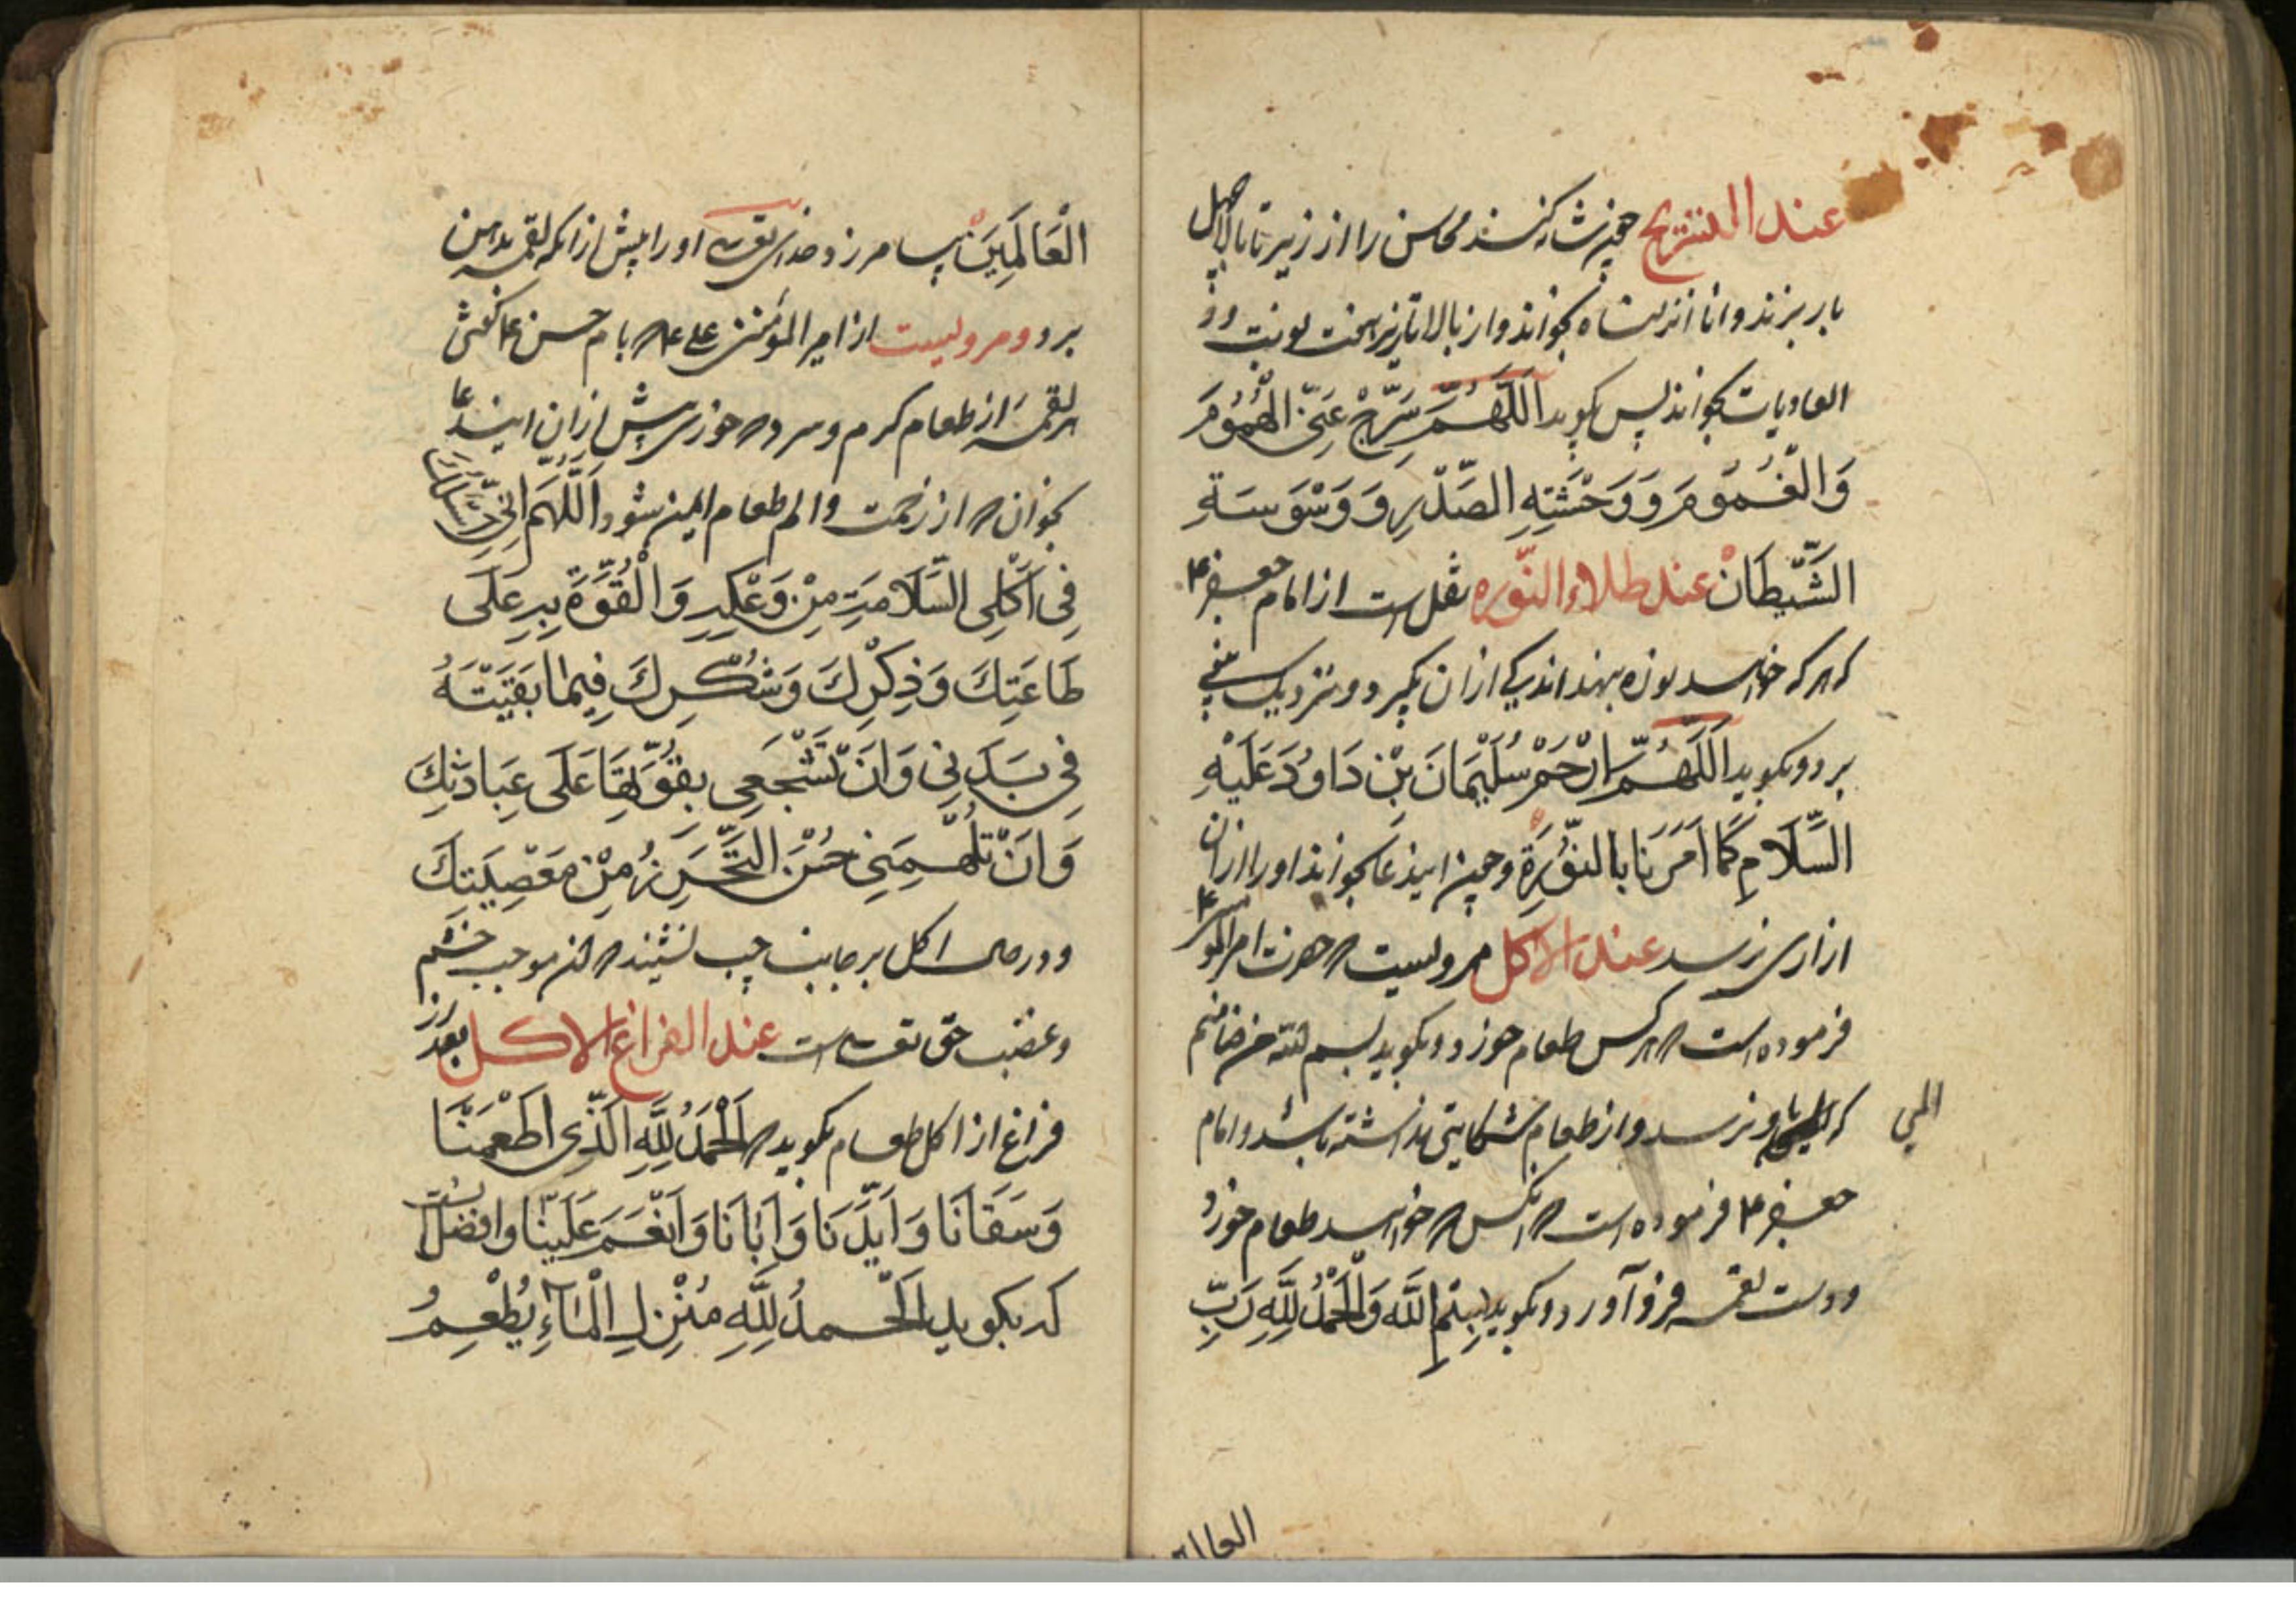 عند التسریح چون شانه کند محاسن را از زیر تا بالا چهل
بار بزند و انا انزلناه بخواند و از بالا تا زیر هفت نوبت و
العادیات بخواند پس بکوید اَللّهُمَّ سَرِّحْ عَنِّی الْهُمُوُمَ
وَالْغُمُوُمَ وَ وَحْشَتِهِ الصَّدْرِ وَ وَسْوَسَةِ
الشَّیْطَانْ عند طلاء النّوره نقل است از امام جعفر ع
که هر که خواهد نوره بنهد اندکی از آن بکیرد و نزدیک بینی
برد و بکوید اَللّهُمَّ ارْحَمْ سُلَیْمَانَ بْنِ دَاوُدَ عَلَیْهِ
السَّلَامِ کَمَا اَمَرَنَا بِالنُّوُرَةِ و چون این دعا بخواند او را از آن
ازاری نرسد عند الاکل مرویست که حضرت امیر المؤمنین ع
فرموده است که هر کس طعام خورد و بکوید بسم الله من ضامنم
که باو نرسد و از طعام شکایتی نداشته باشد و امام
المی
جعفر ع فرموده است که انکس که خواهد طعام خورد
و دست لقمه فرو آورد و بکوید بِسْمِ اللَّه وَالْحَمْدُ لِلَّهِ رَبِّ
الْعَالَمِیَنْ بیامرزد خدای تعالی او را پیش از آنکه لقمه بدهن
برد و مرویست از امیر المؤمنین علی ع که با امام حسن ع کفتی
هر لقمه از طعام کرم و سرد که خوری پیش از آن این دعا
بخوان که از زحمت و الم طعام ایمن شود اَللَّهُمَّ اِنِّی اَسْأَلُکَ
فِی اَکْلِی السَّلَامَةِ مِنْ وَعْکِهِ وَ الْقُوَّةَ بِهِ عَلَی
طَاعَتِكَ وَذِکْرِكَ وَشُکْرِكَ فِیمَا بَقَیَّتَهُ
فِی بَدَنِی وَ اَنْ تُشَجِّعَنِی بِقُوَّتِهَا عَلَی عِبَادَتِكَ
وَ اَنْ تُلْهِمَنِی حُسْنَ التَّحَرُّزِ مِنْ مَعْصِیَتِكَ
و در حال اکل بر جانب چپ ننشیند که آن موجب خشم
و غضب حق تعالی است عند الفراغ الاکل بعد از
فراغ از اکل طعام بکوید که اَلْحَمْدُ لِلَّهِ الَّذِی اَطْعَمَنَا
وَ سَقَانَا وَ اَیَّدَنَا وَ اٰبَانَا وَ اَنْعَمَ عَلَیْنَا و افضل انست
که بکوید اَلْحَمدُ لِلَّهِ مُنْزِلِ الْمَاءِ یُطْعِمُ